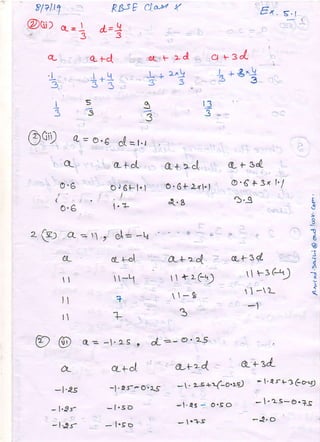 8/7/19 RBSE Class X Ex. 5.1
② (ii) a = 1/3 d = 4/3
a a+d a+2d a+3d
1/3 1/3 + 4/3 1/3 + 2×4/3 1/3 + 3×4/3
1/3 5/3 9/3 13/3
② (iii) a = 0.6 d = 1.1
a a+d a+2d a+3d
0.6 0.6+1.1 0.6+2×1.1 0.6+3×1.1
0.6 1.7 2.8 3.9
2. a = 11, d = -4
a a+d a+2d a+3d
11 11-4 11+2(-4) 11+3(-4)
11 7 11-8 11-12
11 7 3 -1
② (vi) a = -1.25, d = -0.25
a a+d a+2d a+3d
-1.25 -1.25-0.25 -1.25+2(-0.25) -1.25+3(-0.25)
-1.25 -1.50 -1.25-0.50 -1.25-0.75
-1.25 -1.50 -1.75 -2.0